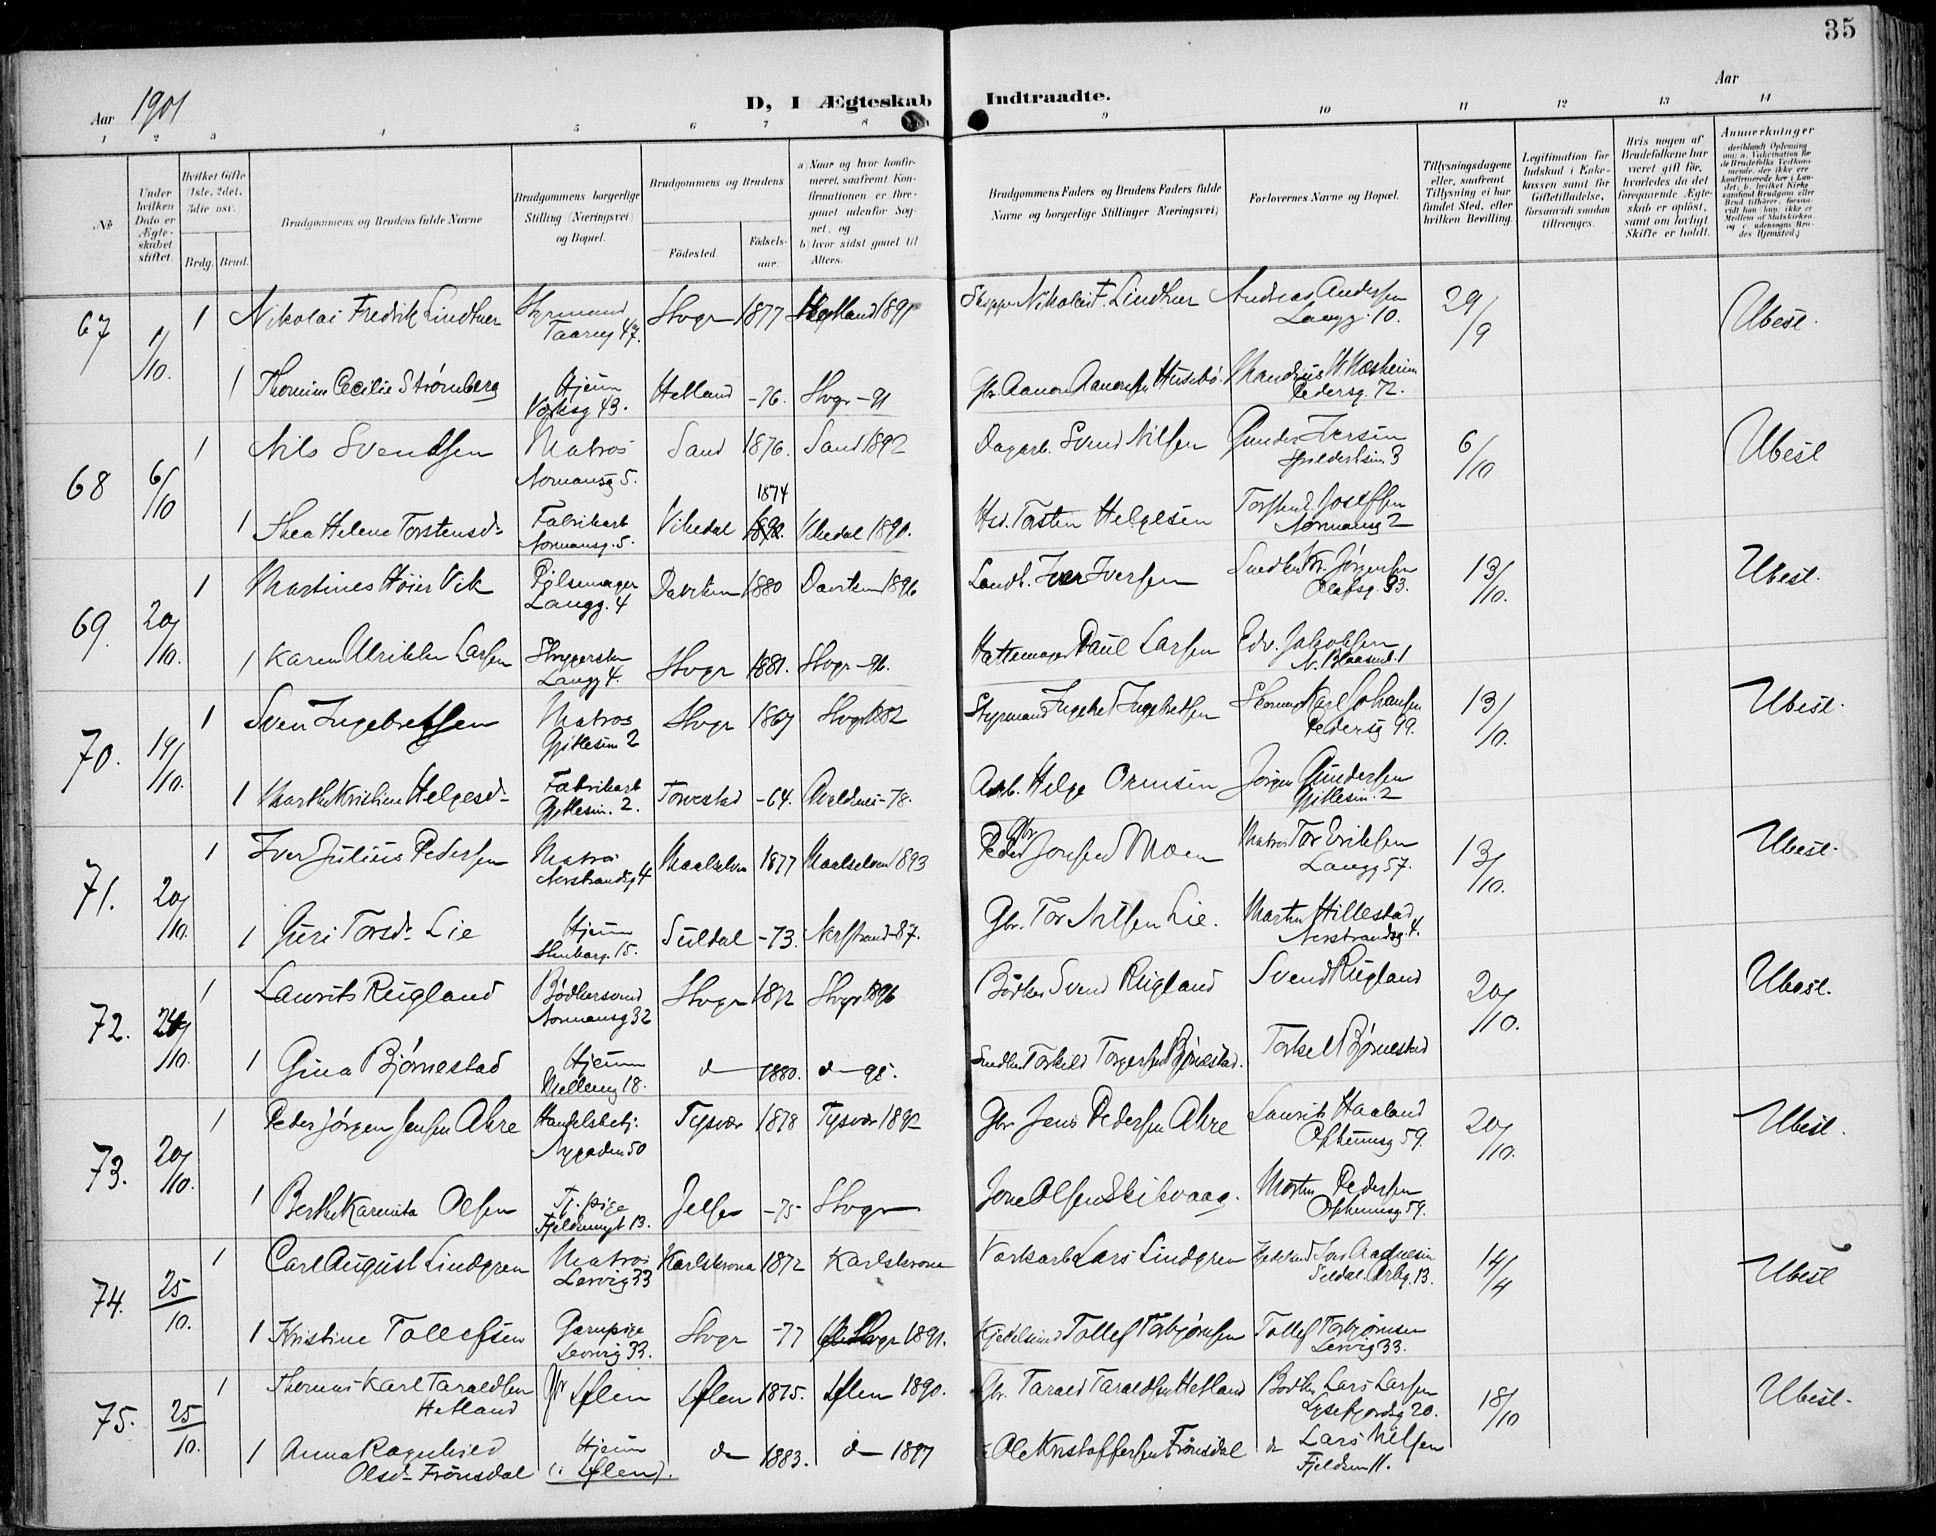 35
Aar 1901
D, I Ægteskab Indtraadte.
Aar
1 2 3 4 5 6 7 8 9 10 11 12 13 14
No
Under hvilken Dato er Ægteskabet stiftet.
Hvilket Gifte 1ste, 2det, 3die osv.
Brdg. Brud.
Brudgommens og Brudens fulde Navne
Brudgommens borgerlige Stilling (Næringsvei) og Bopæl.
Brudgommens og Brudens
Fødested.
Fødselsaar.
a) Naar og hvor konfirmeret, saafremt Konfirmationen er foregaaet udenfor Sognet, og
b) hvor sidst gaaet til Alters.
Brudgommens Faders og Brudens Faders fulde Navne og borgerlige Stillinger (Næringsvei)
Forlovernes Navne og Bopæl.
Tillysningsdagene eller, saafremt Tillysning ei har fundet Sted, efter hvilken Bevilling.
Legitimation for Indskud i Enkekassen samt for Giftetilladelse, forsaavidt saadan tiltrænges.
Hvis nogen af Brudefolkene har været gift før, hvorledes da det foregaaende Ægteskab er opløst, samt om lovligt Skifte er holdt.
Anmerkninger
67 1/10. 1 Nikolai Fredrik Lindtner Styrmand Stvgr 1877 Hetland 1891 Skipper Nikolai F. Lindtner Andreas Andersen 29/9 Ubesl.
Langg. 10.
1 Thomine Cecilie Strømberg Hjem Hetland -76. Stvgr -91 Gbr. Aanen Aanensen Husebø.
Pedersg. 72.
68 6/10 1 Nils Svendsen Matros Sand 1876. Sand 1892 Dagarb. Svend Nilsen Gunder Iversen 6/10 Ubesl
Normansg 5.
1874
1 Thea Helene Torstensdr Fabrikarb Vikedal Vikedal 1890. Hsd. Torsten Helgesen Torsten Joseffsen
Normansg. 5. Normansg 2
69. 20/10. 1 Martines Høier Vik Pølsemager 1880 1896 Landh. Iver Iversen Snedker Jørgensen 13/10. Ubesl.
Langg. 4 Olafsg. 93.
1 Karen Ulrikke Larsen Strygerske Stvgr 1881. Stvgr -96. Hattemager Paul Larsen Edv. Jakobsen
Langg 4. N. Blaasenb. 1
70. 19/10. 1 Sven Ingebretsen Matros Stvgr 1869 Stvgr 1882 Styrmand Ingebret Ingebretsen Karl Johansen 13/10. Ubesl.
Gjitlesm. 2 Pedersg 99.
1 Marthe Kristine Helgesdr Fabrikarb Torvestad -64. Avaldsnes -78. Arb. Helge Ormsen Jørgen Gundersen
Gjitlesm. 2. Gjitlesm. 2
71. 20/10. 1 Iver Julius Pedersen Matros Maalselven 1877 Maalselven 1893 Gbr Peder Jonsen Moen Matros Tor Eriksen 13/10. Ubesl.
Nerstrandsg 4 Langg 57.
1 Guri Torsdr Lie Hjem Suldal -73. Nerstrand -87. Gbr. Tor Nilsen Lie. Martin Hillestad
Stenharg. 15. Nerstrandsg. 4.
72. 1 Laurits Rugland Bødkersvend Stvgr 1872 Stvgr 1896 Bødker Svend Rugland Svend Rugland 20/10. Ubesl.
Normansg 32
1 Gina Bjørnestad Hjem do 1880. do 95. Snedker Torkild Torgersen Bjørnestad. Torkel Bjørnestad
18.
73. 20/10. 1 Peder Jørgen Jensen Akre Handelsbetj. Tysvær 1878 Tysvær 1892 Gbr Jens Pedersen Akre Laurits Haaland 20/10. Ubesl.
Nygaden 50 59.
1 Berthe Karenita Olsen Tj.pige Jelse -75 Stvgr Jone Olsen Skibvaag. Morten Pedersen
13. 59.
74. 25/10. 1 Carl August Lindgren Matros Karlskrona 1872 Karlskrona Værksarb Lars Lindgren 14/4 Ubesl
Lervig 33 13.
1 Kristine Tollefsen Stvgr -77 Stvgr 1891. Kjedelsmed Tollef Torbjørnsen Tollef Torbjørnsen
Lervig 33. Lervig 33.
75. 25/10. 1 Thomas Karl Taraldsen Gbr Iflen Iflen 1875. Iflen 1890. Gbr. Tarald Taraldsen Hetland Bødker Lars Larsen 18/10 Ubesl.
Hetland Lysefjordsg 20.
1 Anna Ragnhild Hjem do 1883. do 1897 Ole Kristoffersen Frønsdal do Lars Nilsen
Olsdr Frønsdal (i Iflen). Fjeldsm 11.